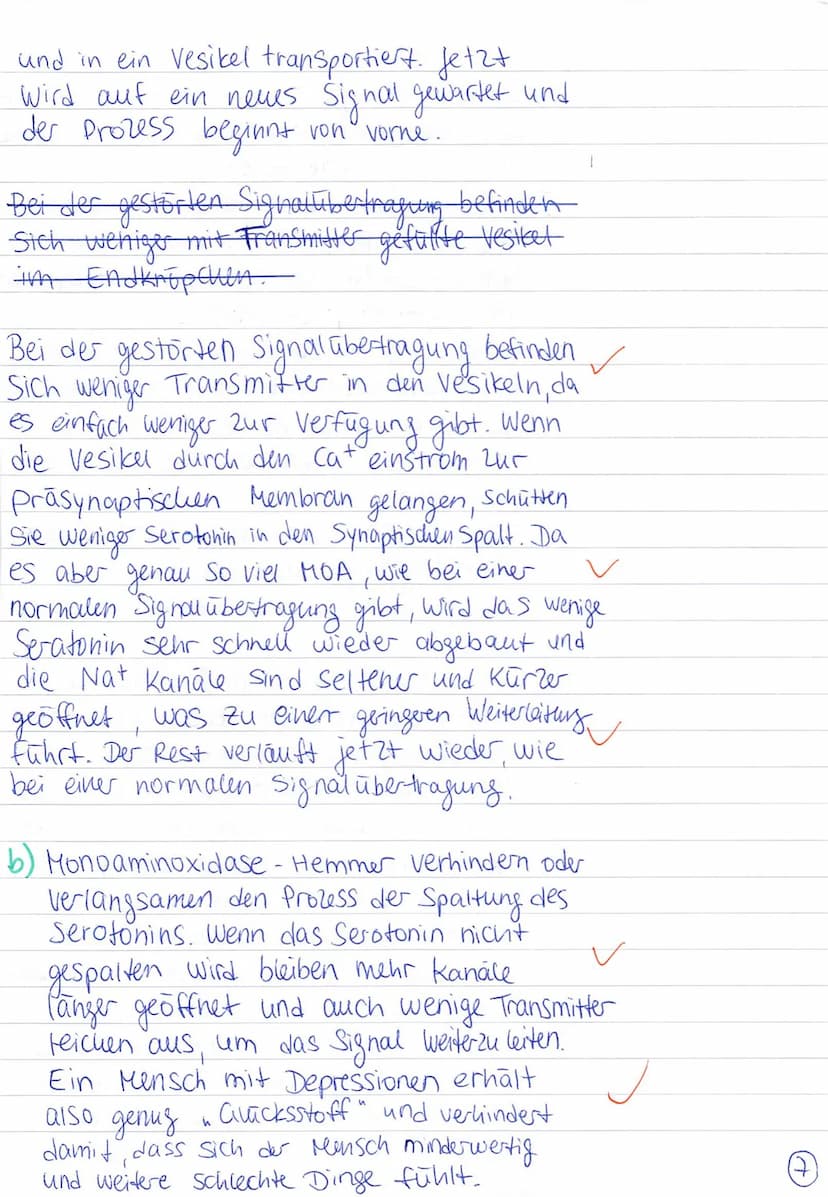 und in ein Vesikel transportiert. Jetzt
wird auf ein neues Signal gewartet und
der Prozess beginnt von vorne.
Bei der gestörten Signalübertragung befinden
sich weniger mit Transmitter gefüllte Vesikel
im Endknöpchen.
Bei der gestörten Signalübertragung befinden
sich weniger Transmitter in den Vesikeln, da
es einfach weniger zur Verfügung gibt. Wenn
die Vesikel durch den Ca⁺ einstrom zur
präsynaptischen Membran gelangen, schütten
sie weniger Serotonin in den Synaptischen Spalt. Da
es aber genau so viel MOA, wie bei einer
normalen Signalübertragung gibt, wird das wenige
Seratonin sehr schnell wieder abgebaut und
die Na⁺ Kanäle sind seltener und kürzer
geöffnet, was zu einer geringeren Weiterleitung
führt. Der Rest verläuft jetzt wieder, wie
bei einer normalen Signalübertragung.
b) Monoaminoxidase-Hemmer verhindern oder
verlangsamen den Prozess der Spaltung des
Serotonins. Wenn das Serotonin nicht
gespalten wird bleiben mehr Kanäle
länger geöffnet und auch wenige Transmitter
reichen aus, um das Signal weiterzu leiten.
Ein Mensch mit Depressionen erhält
also genug „Glücksstoff" und verhindert
damit, dass sich der Mensch minderwertig
und weitere schlechte Dinge fühlt.
7